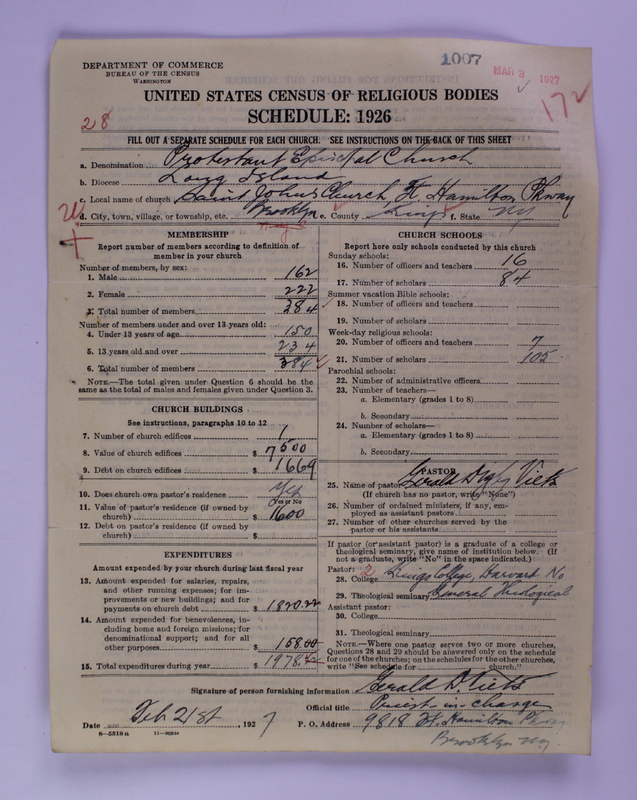 1007
MAR 3 1927
172
DEPARTMENT OF COMMERCE
BUREAU OF THE CENSUS
WASHINGTON
UNITED STATES CENSUS OF RELIGIOUS BODIES
SCHEDULE: 1926
28
FILL OUT A SEPARATE SCHEDULE FOR EACH CHURCH. SEE INSTRUCTIONS ON THE BACK OF THIS SHEET
a. Denomination Protestant Episcopal Church
b. Diocese Long Island
c. Local name of church Saint John's Church Ft. Hamilton Pkway
d. City, town, village, or township, etc. Brooklyn e. County Kings f. State NY
MEMBERSHIP
Report number of members according to definition of member in your church
Number of members, by sex:
1. Male 162
2. Female 222
3. Total number of members 384
Number of members under and over 13 years old:
4. Under 13 years of age 150
5. 13 years old and over 234
6. Total number of members 384
NOTE.—The total given under Question 6 should be the same as the total of males and females given under Question 3.
CHURCH BUILDINGS
See instructions, paragraphs 10 to 12
7. Number of church edifices 1
8. Value of church edifices $ 7500
9. Debt on church edifices $ 1669
10. Does church own pastor's residence Yes
(Yes or No
11. Value of pastor's residence (if owned by church) $ 1600
12. Debt on pastor's residence (if owned by church) $
EXPENDITURES
Amount expended by your church during last fiscal year
13. Amount expended for salaries, repairs, and other running expenses; for improvements or new buildings; and for payments on church debt $ 1820.22
14. Amount expended for benevolences, including home and foreign missions; for denominational support; and for all other purposes $ 158.00
15. Total expenditures during year $ 1978
CHURCH SCHOOLS
Report here only schools conducted by this church
Sunday schools:
16. Number of officers and teachers 16
17. Number of scholars 84
Summer vacation Bible schools:
18. Number of officers and teachers
19. Number of scholars
Week-day religious schools:
20. Number of officers and teachers 7
21. Number of scholars 105
Parochial schools:
22. Number of administrative officers
23. Number of teachers—
a. Elementary (grades 1 to 8)
b. Secondary
24. Number of scholars—
a. Elementary (grades 1 to 8)
b. Secondary
PASTOR
25. Name of pastor Gerald Digby Viets
(If church has no pastor, write "None")
26. Number of ordained ministers, if any, employed as assistant pastors
27. Number of other churches served by the pastor or his assistants
If pastor (or assistant pastor) is a graduate of a college or theological seminary, give name of institution below. (If not a graduate, write "No" in the space indicated.)
Pastor: 2
28. College Kings College, Harvard No
29. Theological seminary General Theological
Assistant pastor:
30. College
31. Theological seminary
NOTE.—Where one pastor serves two or more churches, Questions 28 and 29 should be answered only on the schedule for one of the churches; on the schedules for the other churches, write "See schedule for church."
Signature of person furnishing information Gerald D. Viets
Official title Priest-in-charge
Date Feb 21st, 1927 P. O. Address 9818 Ft. Hamilton Pkway
Brooklyn NY.
8—5518a